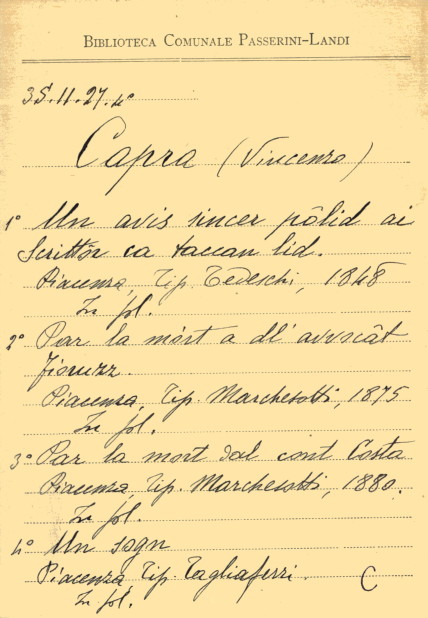 BIBLIOTECA COMUNALE PASSERINI-LANDI
35.11.27.4°
Capra (Vincenzo)
1° Un avis sincer pôlid ai
Scrittôr ca taccan lid.
Piacenza, Tip. Tedeschi, 1848
In fol.
2° Par la mórt a dl' avvocât
Fioruzz.
Piacenza, Tip. Marchesotti, 1875
In fol.
3° Par la mort dal cont Costa
Piacenza, Tip. Marchesotti, 1880.
In fol.
4° Un sogn
Piacenza Tip. Tagliaferri. C
In fol.